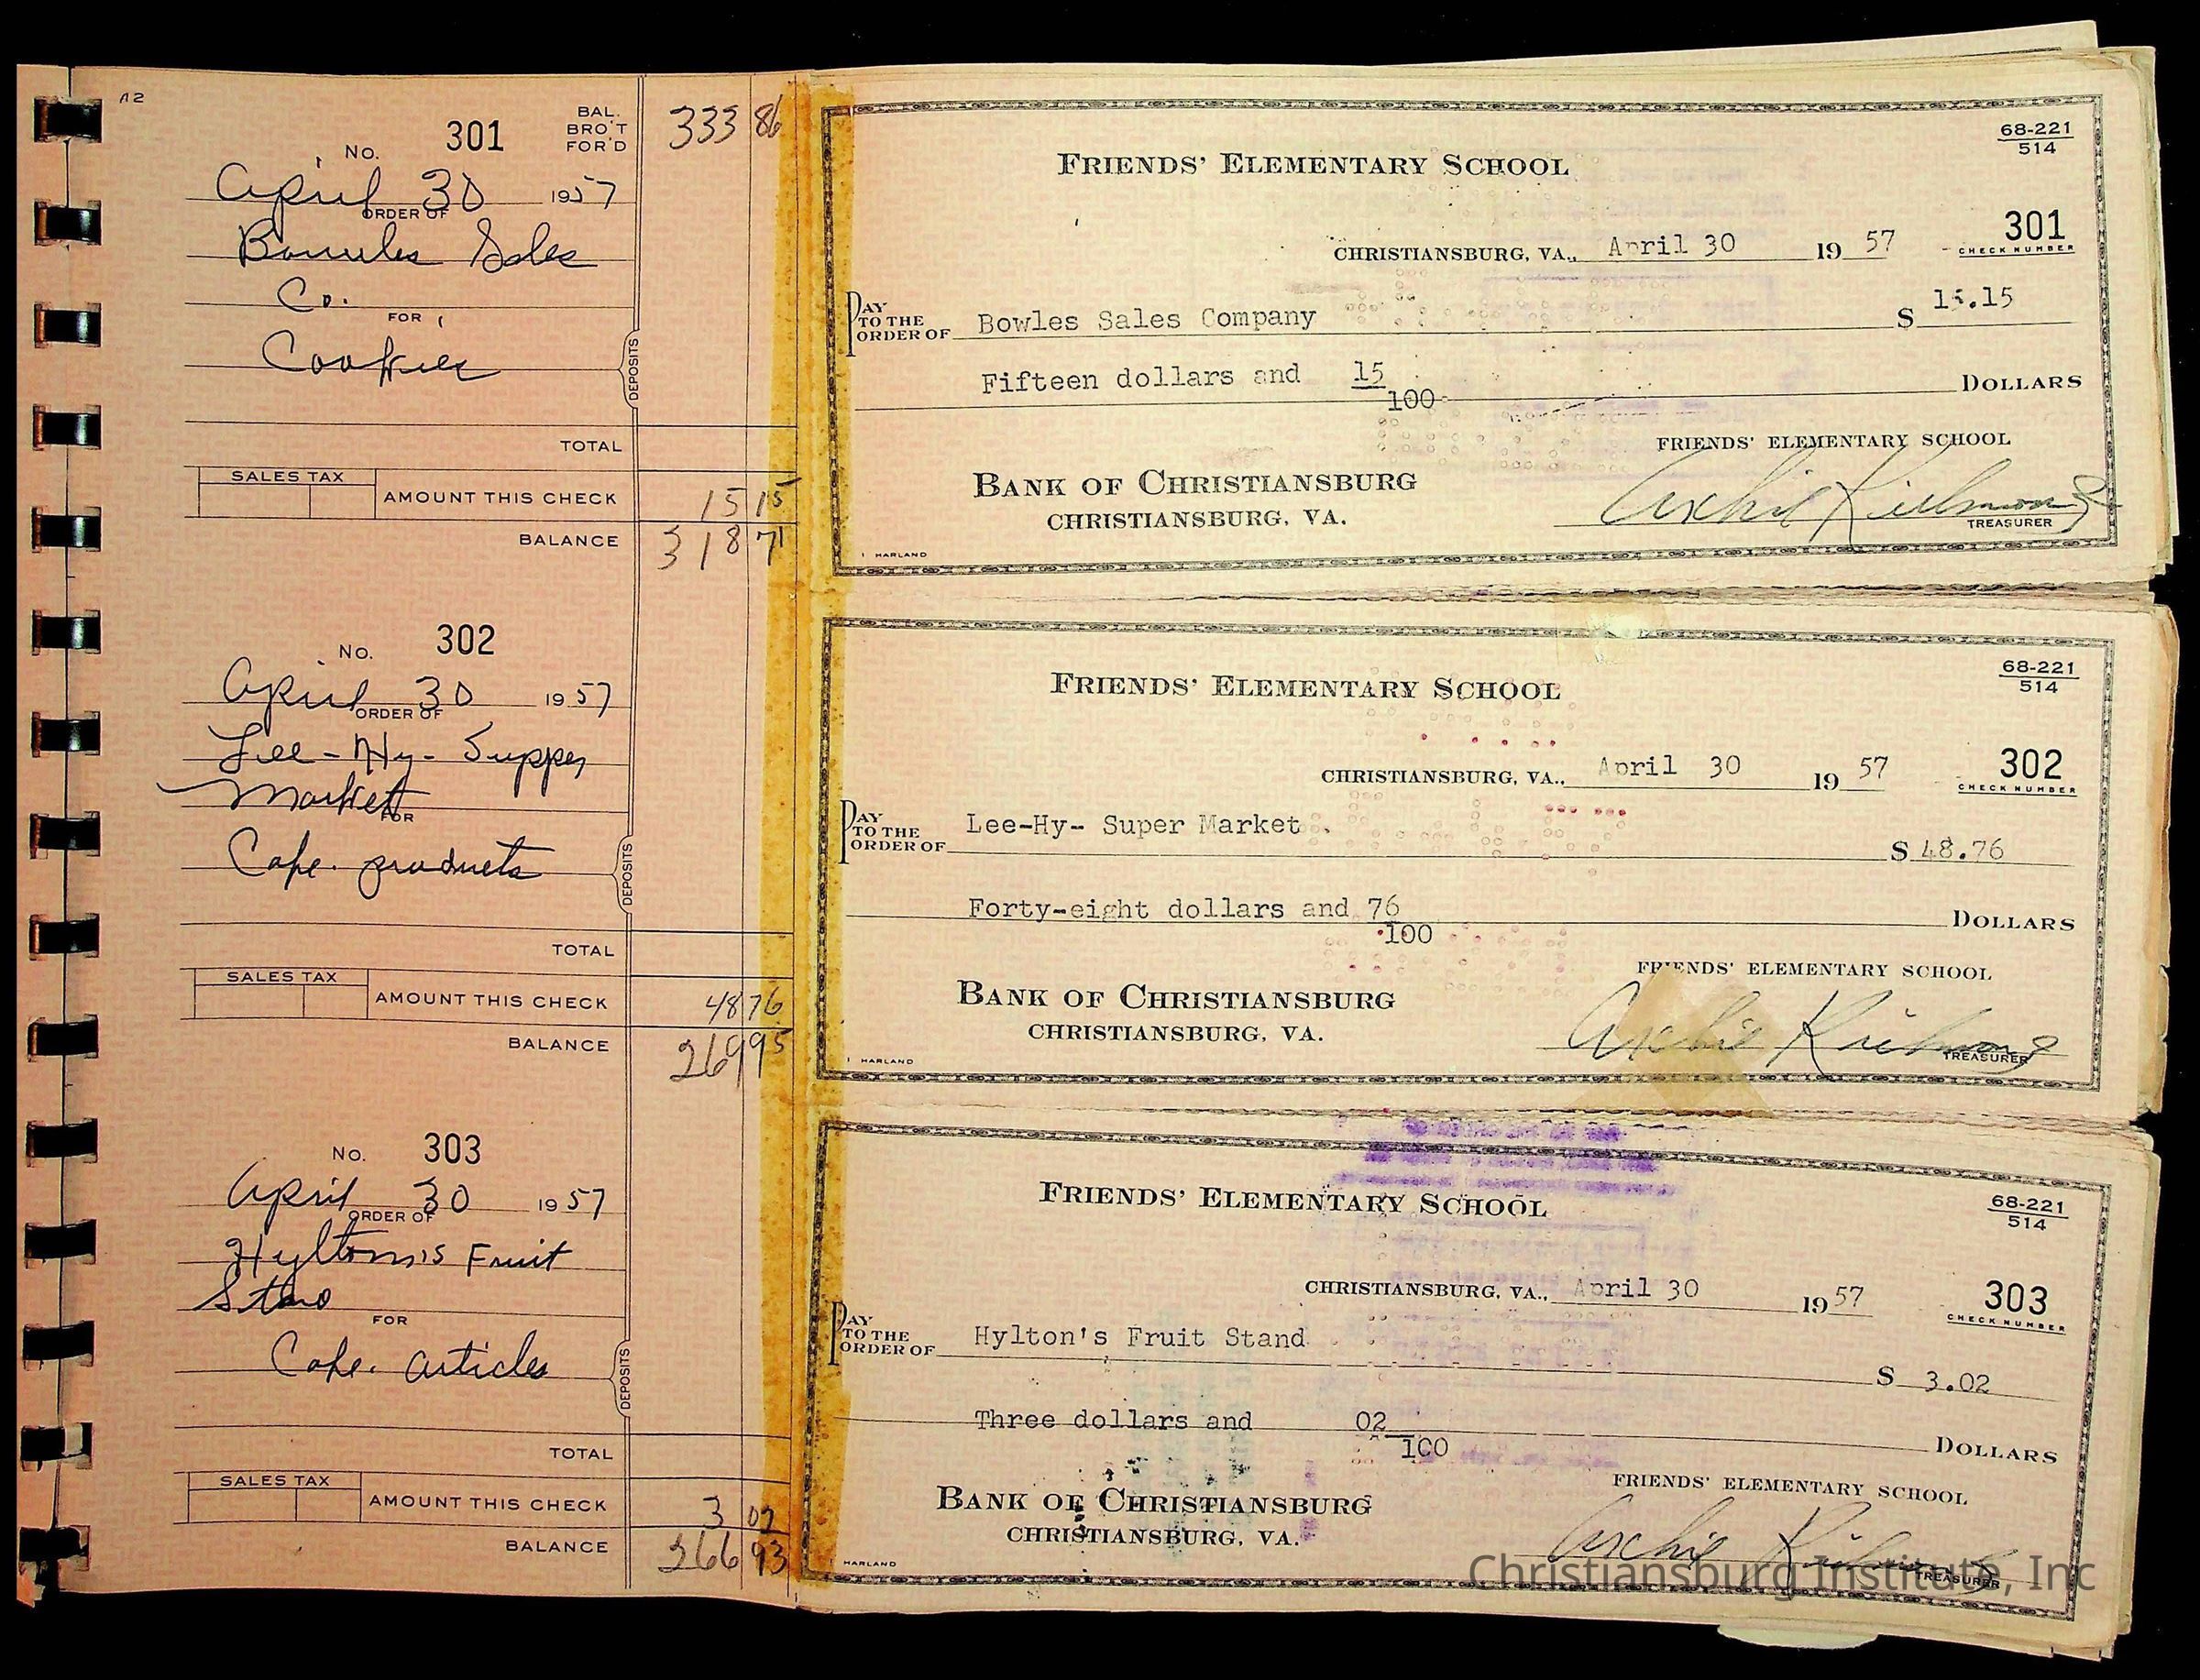 BAL.
BRO'T
FOR'D
333 86
No. 301
April 30 1957
ORDER OF
Sales
Co.
FOR
Cookies
DEPOSITS
TOTAL
SALES TAX
AMOUNT THIS CHECK 15 15
BALANCE 318 71
No. 302
April 30 1957
ORDER OF
Lee-Hy-Supper
Market
FOR
Cafe. products
DEPOSITS
TOTAL
SALES TAX
AMOUNT THIS CHECK 48 76
BALANCE 269 95
No. 303
April 30 1957
ORDER OF
Fruit
FOR
Cafe. articles
DEPOSITS
TOTAL
SALES TAX
AMOUNT THIS CHECK 3 02
BALANCE 266 93
FRIENDS' ELEMENTARY SCHOOL
68-221
514
CHRISTIANSBURG, VA., April 30 19 57
301
CHECK NUMBER
PAY
TO THE
ORDER OF Bowles Sales Company $ 15.15
Fifteen dollars and 15
100 DOLLARS
FRIENDS' ELEMENTARY SCHOOL
BANK OF CHRISTIANSBURG
CHRISTIANSBURG, VA.
Archie Richmond
TREASURER
HARLAND
FRIENDS' ELEMENTARY SCHOOL
68-221
514
CHRISTIANSBURG, VA., April 30 19 57
302
CHECK NUMBER
PAY
TO THE
ORDER OF Lee-Hy- Super Market $ 48.76
Forty-eight dollars and 76
100 DOLLARS
FRIENDS' ELEMENTARY SCHOOL
BANK OF CHRISTIANSBURG
CHRISTIANSBURG, VA.
Archie Richmond
TREASURER
HARLAND
FRIENDS' ELEMENTARY SCHOOL
68-221
514
CHRISTIANSBURG, VA., April 30 19 57
303
CHECK NUMBER
PAY
TO THE
ORDER OF Hylton's Fruit Stand $ 3.02
Three dollars and 02
100 DOLLARS
FRIENDS' ELEMENTARY SCHOOL
BANK OF CHRISTIANSBURG
CHRISTIANSBURG, VA.
Archie Richmond
TREASURER
HARLAND
Christiansburg Institute, Inc